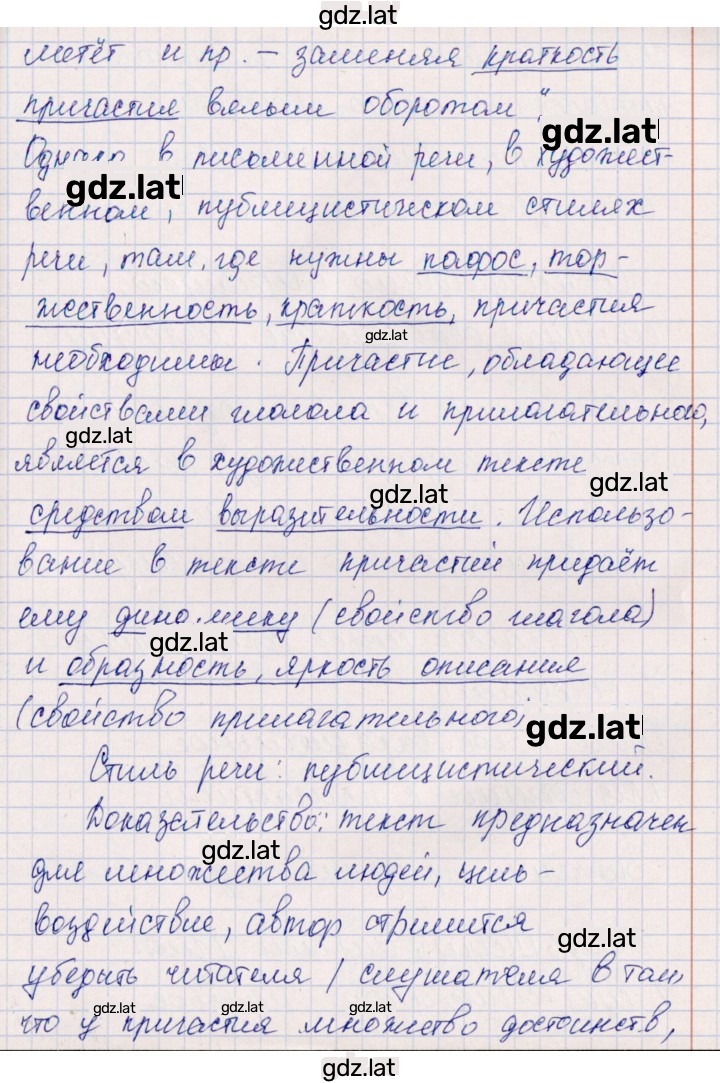 gdz.lat
метёт и пр. – заменяя краткость
причастия вялым оборотом“.
gdz.lat
Однако в письменной речи, в художест-
gdz.lat
венном, публицистическом стилях
речи, там, где нужны пафос, тор-
жественность, краткость, причастия
gdz.lat
необходимы. Причастие, обладающее
свойствами глагола и прилагательного,
gdz.lat
является в художественном тексте
gdz.lat gdz.lat
средством выразительности. Использо-
вание в тексте причастий придаёт
ему динамику (свойство глагола)
gdz.lat
и образность, яркость описания
(свойство прилагательного)
gdz.lat
Стиль речи: публицистический.
Доказательство: текст предназначен
gdz.lat
для множества людей, цель –
воздействие, автор стремится
gdz.lat
убедить читателя / слушателя в том,
gdz.lat gdz.lat gdz.lat gdz.lat
что у причастия множество достоинств,
gdz.lat